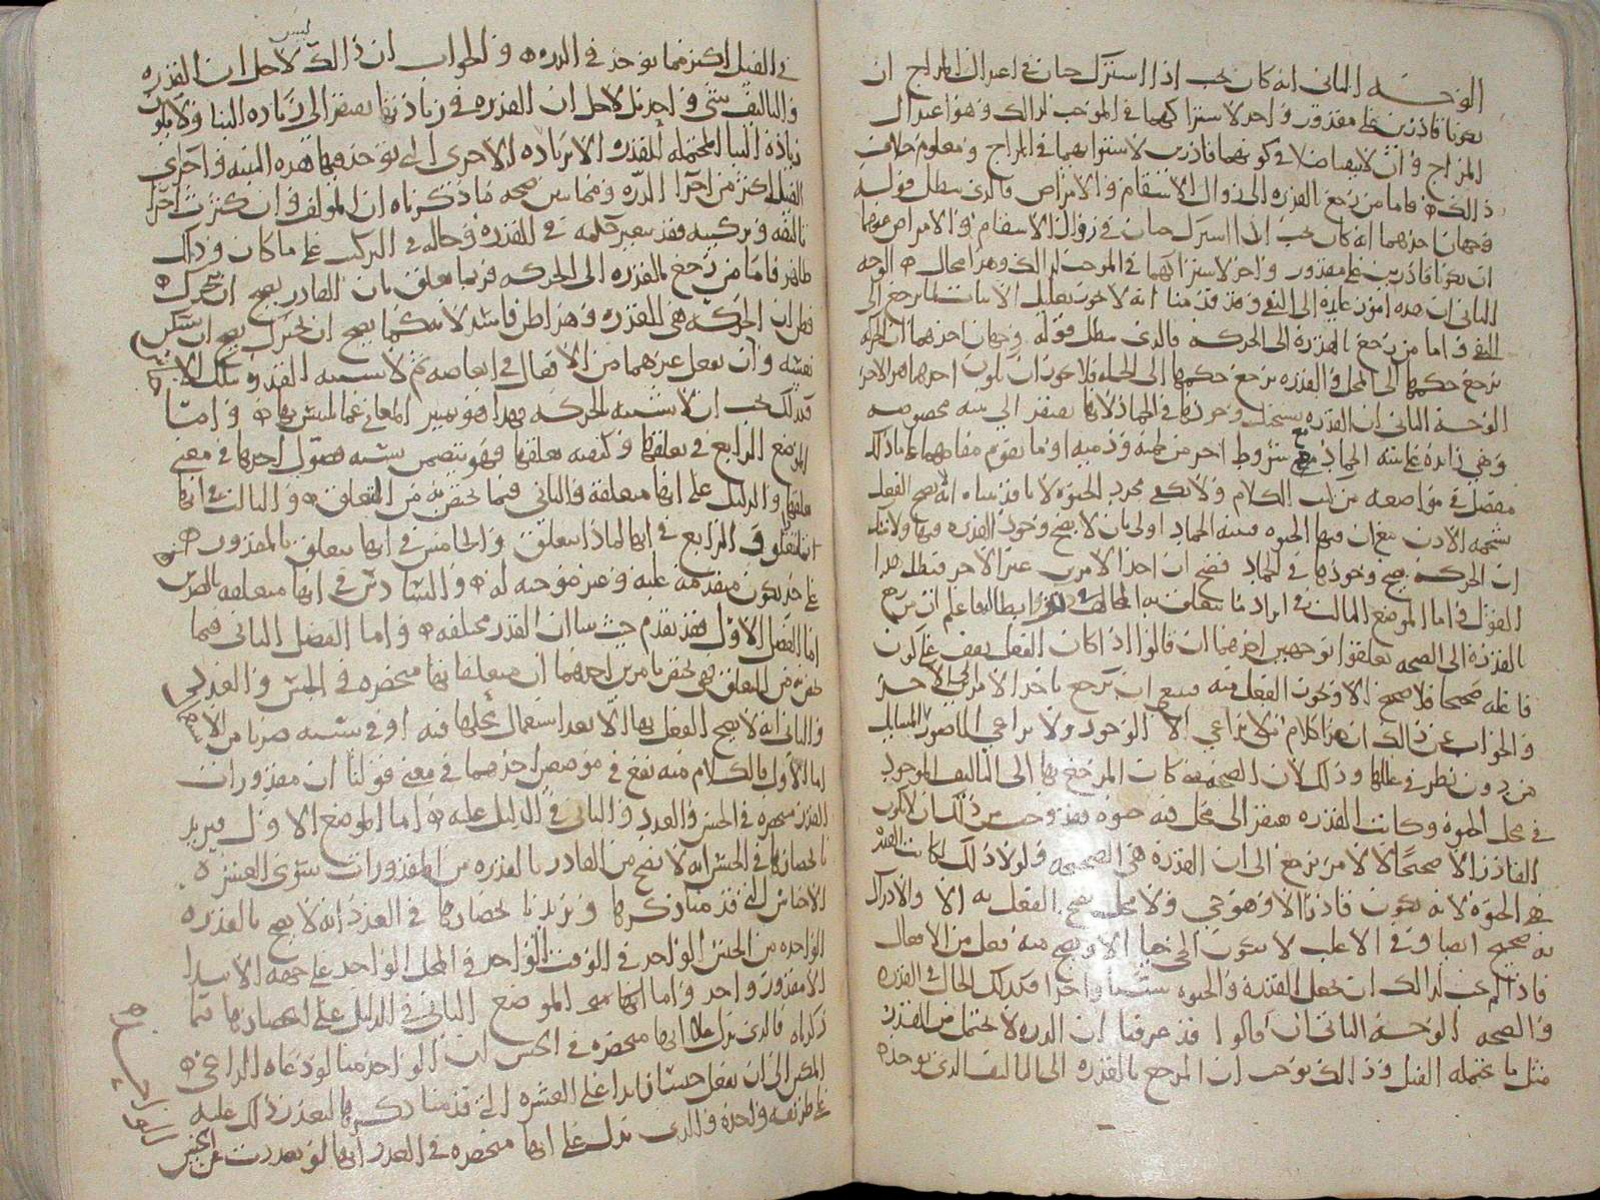 الوجه الثاني انه كان يجب اذا اشترك حيان في اعتدال المزاج ان
يكونا قادرين على مقدور واحد لاشتراكهما في الموجب لذالك وهو اعتدال
المزاج وان لا يتفاضلا في كونهما قادرين لاستوائهما في المزاج ومعلوم خلاف
ذالك فاما من رجع بالقدرة الى زوال الاسقام والامراض فالذي يبطل قوله
وجهان احدهما انه كان يجب اذا اشترك حيان في زوال الاسقام والامراض عنهما
ان يكونا قادرين على مقدور واحد لاشتراكهما في الموجب لذالك وهذا محال الوجه
الثاني ان هذه امور عايدة الى النفي وقد قدمنا انه لا يجوز تعليل الاثبات بما يرجع الى
النفي واما من رجع بالقدرة الى الحركة فالذي يبطل قوله وجهان احدهما ان الحركة
يرجع حكمها الى المحل والقدرة يرجع حكمها الى الجملة فلا يجوز ان يكون احدهما هو الاخر
الوجه الثاني ان القدرة يستحيل وجودها في الجماد لانها تفتقر الى بنية مخصوصة
وهي زايدة على بنية الجماد مع شروط اخر من
مفصل في مواضعه من كتب الكلام ولا يكفي مجرد الحيوة لانا قد بينا انه لا يصح الفعل
بشحمة الاذن مع ان فيها الحيوة فبنية الجماد اولى بان لا يصح وجود القدرة فيها ولا شك
ان الحركة يصح وجودها في الجماد فصح ان احد الامرين غير الاخر فبطل هذا
القول واما الموضع الثالث في ايراد ما يتعلق به المخالف وابطاله فاعلم ان من رجع
بالقدرة الى الصحة تعلقوا بوجهين احدهما ان قالوا اذا كان الفعل يقف على كون
فاعله صحيحا فلا صحيح الا ويجوز الفعل منه فيجب ان يرجع باحد الامرين الى الاخر
والجواب عن ذالك ان هذا كلام من لا يراعي الا الوجود ولا يراعي
من دون نظر في عللها وذلك لان الصحة لما كانت المرجع بها الى التاليف الموجود
في محل الحيوة وكانت القدرة تفتقر الى محل فيه حيوة فقد وجب من ذلك ان لا يكون
القادر الا صحيحا لا لامر يرجع الى ان القدرة هي الصحة ولولا ذلك لكانت القدرة
هي الحيوة لانه لا يكون قادرا الا وهو حي ولا محل يصح الفعل به الا والادراك
به صحيح ايضا وفي الاغلب لا يكون الحي حيا الا ويصح منه فعل من الافعال
فاذا لم يجب لذالك ان تجعل القدرة والحيوة شيئا واحدا فكذلك الحال في القدرة
والصحة الوجه الثاني ان قالوا قد عرفنا ان الذرة لا تحتمل من القدر
مثل ما يحتمله الفيل وذالك يوجب ان المرجع بالقدرة الى التاليف الذي يوجد
في الفيل اكثر مما يوجد في الذرة والجواب ان ذالك ليس لاجل ان القدرة
والتاليف شيء واحد بل لاجل ان القدرة في زيادتها تفتقر الى زيادة البنا ولا يكون
زيادة البنا المحتملة للقدرة الا بزيادة الاجزى التي يوجد فيها هذه البنية واجزاي
الفيل اكثر من اجزا الذرة ومما يبين صحة ما ذكرناه ان المولف وان كثرت اجزا
تاليفه وتركيبه فقد يتغير حكمه في القدرة وحاله في التركيب على ما كان وذلك
ظاهر فاما من رجع بالقدرة الى الحركة فربما تعلق بان القادر يصح ان يتحرك
فظن ان الحركة هي القدرة وهذا ظن فاسد لانه كما يصح ان يتحرك يصح ان يسكن
نفسه وان يفعل غيرهما من الافعال في ابعاضه ثم لا نسمي القدرة بتلك الاسما
فكذلك يجب ان لا نسميه الحركة فهذا هو تمييز المعاني عما يلتبس بها واما
الموضع الرابع في تعلقها وكيفية تعلقها فهو يتضمن ستة فصول احدها في معنى
تعلقها والدليل على انها متعلقة والثاني فيما تختص به من التعلق والثالث في انها
والرابع في انها لماذا تتعلق والخامس في انها تتعلق بالمقدور
على حد يكون متقدمة عليه وغير موجبة له والسادس في انها متعلقة بالضدين
اما الفصل الاول فقد تقدم حيث بينا ان القدر مختلفة واما الفصل الثاني فيما
تختص به من التعلق فهي تختص بامرين احدهما ان متعلقاتها منحصرة في الجنس والعدد
والثاني انه لا يصح الفعل بها الا بعد استعمال محلها فيه او في سببه ضربا من الاستعمال
اما الاول فالكلام منه يقع في موضعين احدهما في معنى قولنا ان مقدورات
القدر منحصرة في الجنس والعدد والثاني في الدليل عليه اما الموضع الاول فنريد
بانحصارها في الجنس انه لا يصح من القادر بالقدرة من المقدورات سوى العشرة
الاجناس التي قدمنا ذكرها ونريد بانحصارها في العدد انه لا يصح بالقدرة
الواحدة من الجنس الواحد في الوقت الواحد في المحل الواحد على جهة الابتدا
الا مقدور واحد واما الموضع الثاني في الدليل على انحصارها فيما
ذكرناه فالذي يدل على انها منحصرة في الجنس ان الواحد منا لو دعاه الداعي
المكين الى ان يفعل جنسا زايدا على العشرة التي قدمنا ذكرها لتعذر ذلك عليه
على طريقة واحدة والذي يدل على انها منحصرة في العدد انها لو تعدت من الجنس